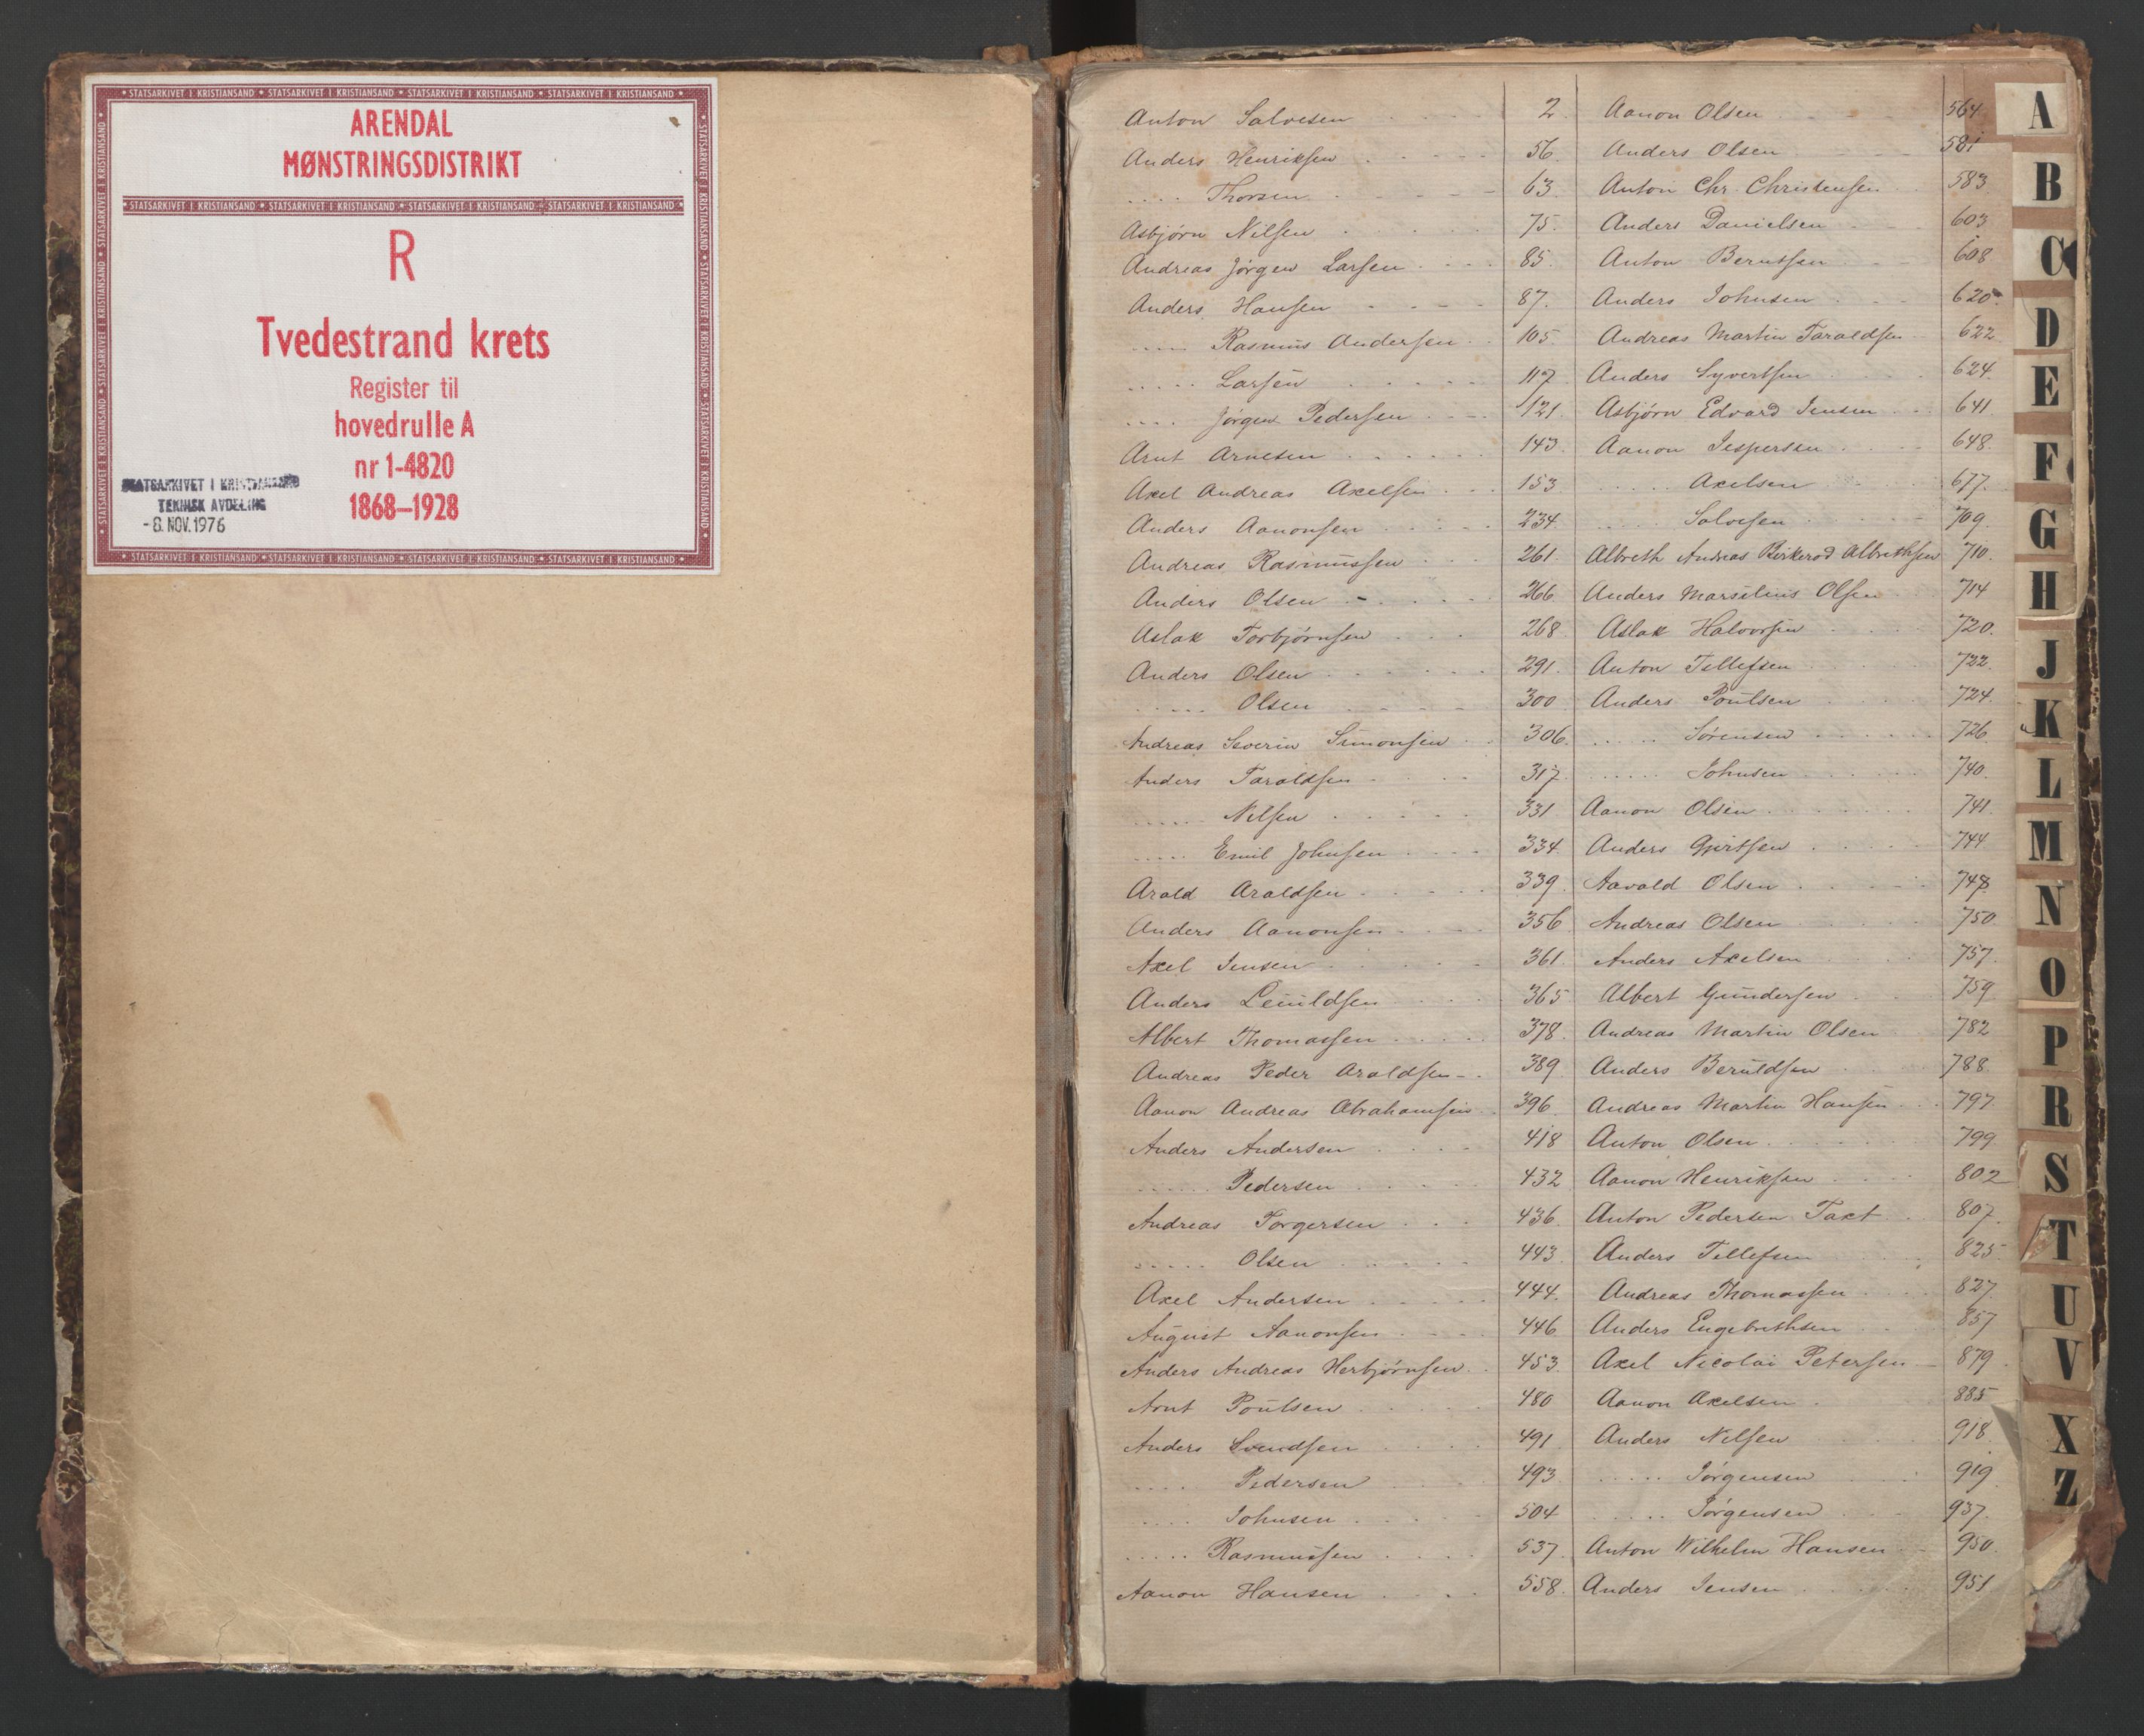 STATSARKIVET I KRISTIANSAND * STATSARKIVET I KRISTIANSAND * STATSARKIVET I KRISTIANSAND * STATSARKIVET I KRISTIANSAND
ARENDAL
MØNSTRINGSDISTRIKT
STATSARKIVET I KRISTIANSAND * STATSARKIVET I KRISTIANSAND * STATSARKIVET I KRISTIANSAND * STATSARKIVET I KRISTIANSAND
R
Tvedestrand krets
Register til
hovedrulle A
nr 1-4820
1868–1928
STATSARKIVET I KRISTIANSAND
TEKNISK AVDELING
- 8. NOV. 1976
STATSARKIVET I KRISTIANSAND * STATSARKIVET I KRISTIANSAND * STATSARKIVET I KRISTIANSAND * STATSARKIVET I KRISTIANSAND
Anton Salvesen 2
Anders Henriksen 56.
.... Thorsen 63.
Asbjørn Nilsen 75.
Andreas Jørgen Larsen 85.
Anders Hansen 87.
.... Rasmus Andersen 105.
..... Larsen 117.
.... Jørgen Pedersen 121.
Arnt Arnesen 143.
Axel Andreas Axelsen 153.
Anders Aanonsen 234.
Andreas Rasmussen 261.
Anders Olsen 266
Aslak Torbjørnsen 268.
Anders Olsen 291.
..... Olsen 300
Andreas Severin Simonsen 306.
Anders Taraldsen 317.
..... Nilsen 331.
..... Emil Johnsen 334.
Arald Araldsen 339.
Anders Aanonsen 356.
Axel Jensen 361.
Anders Leuuldsen 365
Albert Thomassen 378.
Andreas Peder Araldsen 389.
Aanon Andreas Abrahamsen 396.
Anders Andersen 418
...... Pedersen 432
Andreas Torgersen 436.
..... Olsen 443.
Axel Andersen 444.
August Aanonsen 446
Anders Andreas Herbjørnsen 453.
Arnt Poulsen 480
Anders Svendsen 491
.... Pedersen 493
.... Johnsen 504
..... Rasmussen 537.
Aanon Hansen 558.
Aanon Olsen 564
Anders Olsen 581
Anton Chr. Christensen 583.
Anders Danielsen 603
Anton Berntsen 608
Anders Johnsen 620.
Andreas Martin Taraldsen 622
Anders Syvertsen 624.
Asbjørn Edvard Jensen 641
Aanon Jespersen 648.
..... Axelsen 677.
..... Salvesen 709
Albreth Andreas Birkerod Albrethsen 710.
Anders Marselius Olsen 714
Aslak Halvorsen 720.
Anton Tellefsen 722.
Anders Poulsen 724.
..... Sørensen 726
..... Johnsen 740.
Aanon Olsen 741.
Anders Gjertsen 744
Aavald Olsen 748
Andreas Olsen 750.
Anders Axelsen 757.
Albert Gundersen 759
Andreas Martin Olsen 782
Anders Beruldsen 788.
Andreas Martin Hansen 797
Anton Olsen 799
Aanon Henriksen 802
Anton Pedersen Taxt 807.
Anders Tellefsen 825.
Andreas Thomassen 827.
Anders Engebrethsen 857
Axel Nicolai Petersen 879.
Aanon Axelsen 885
Anders Nilsen 918.
..... Jørgensen 919
..... Jørgensen 937.
Anton Wilhelm Hansen 950.
Anders Jensen 951
A
B
C
D
E
F
G
H
J
K
L
M
N
O
P
R
S
T
U
V
X
Z